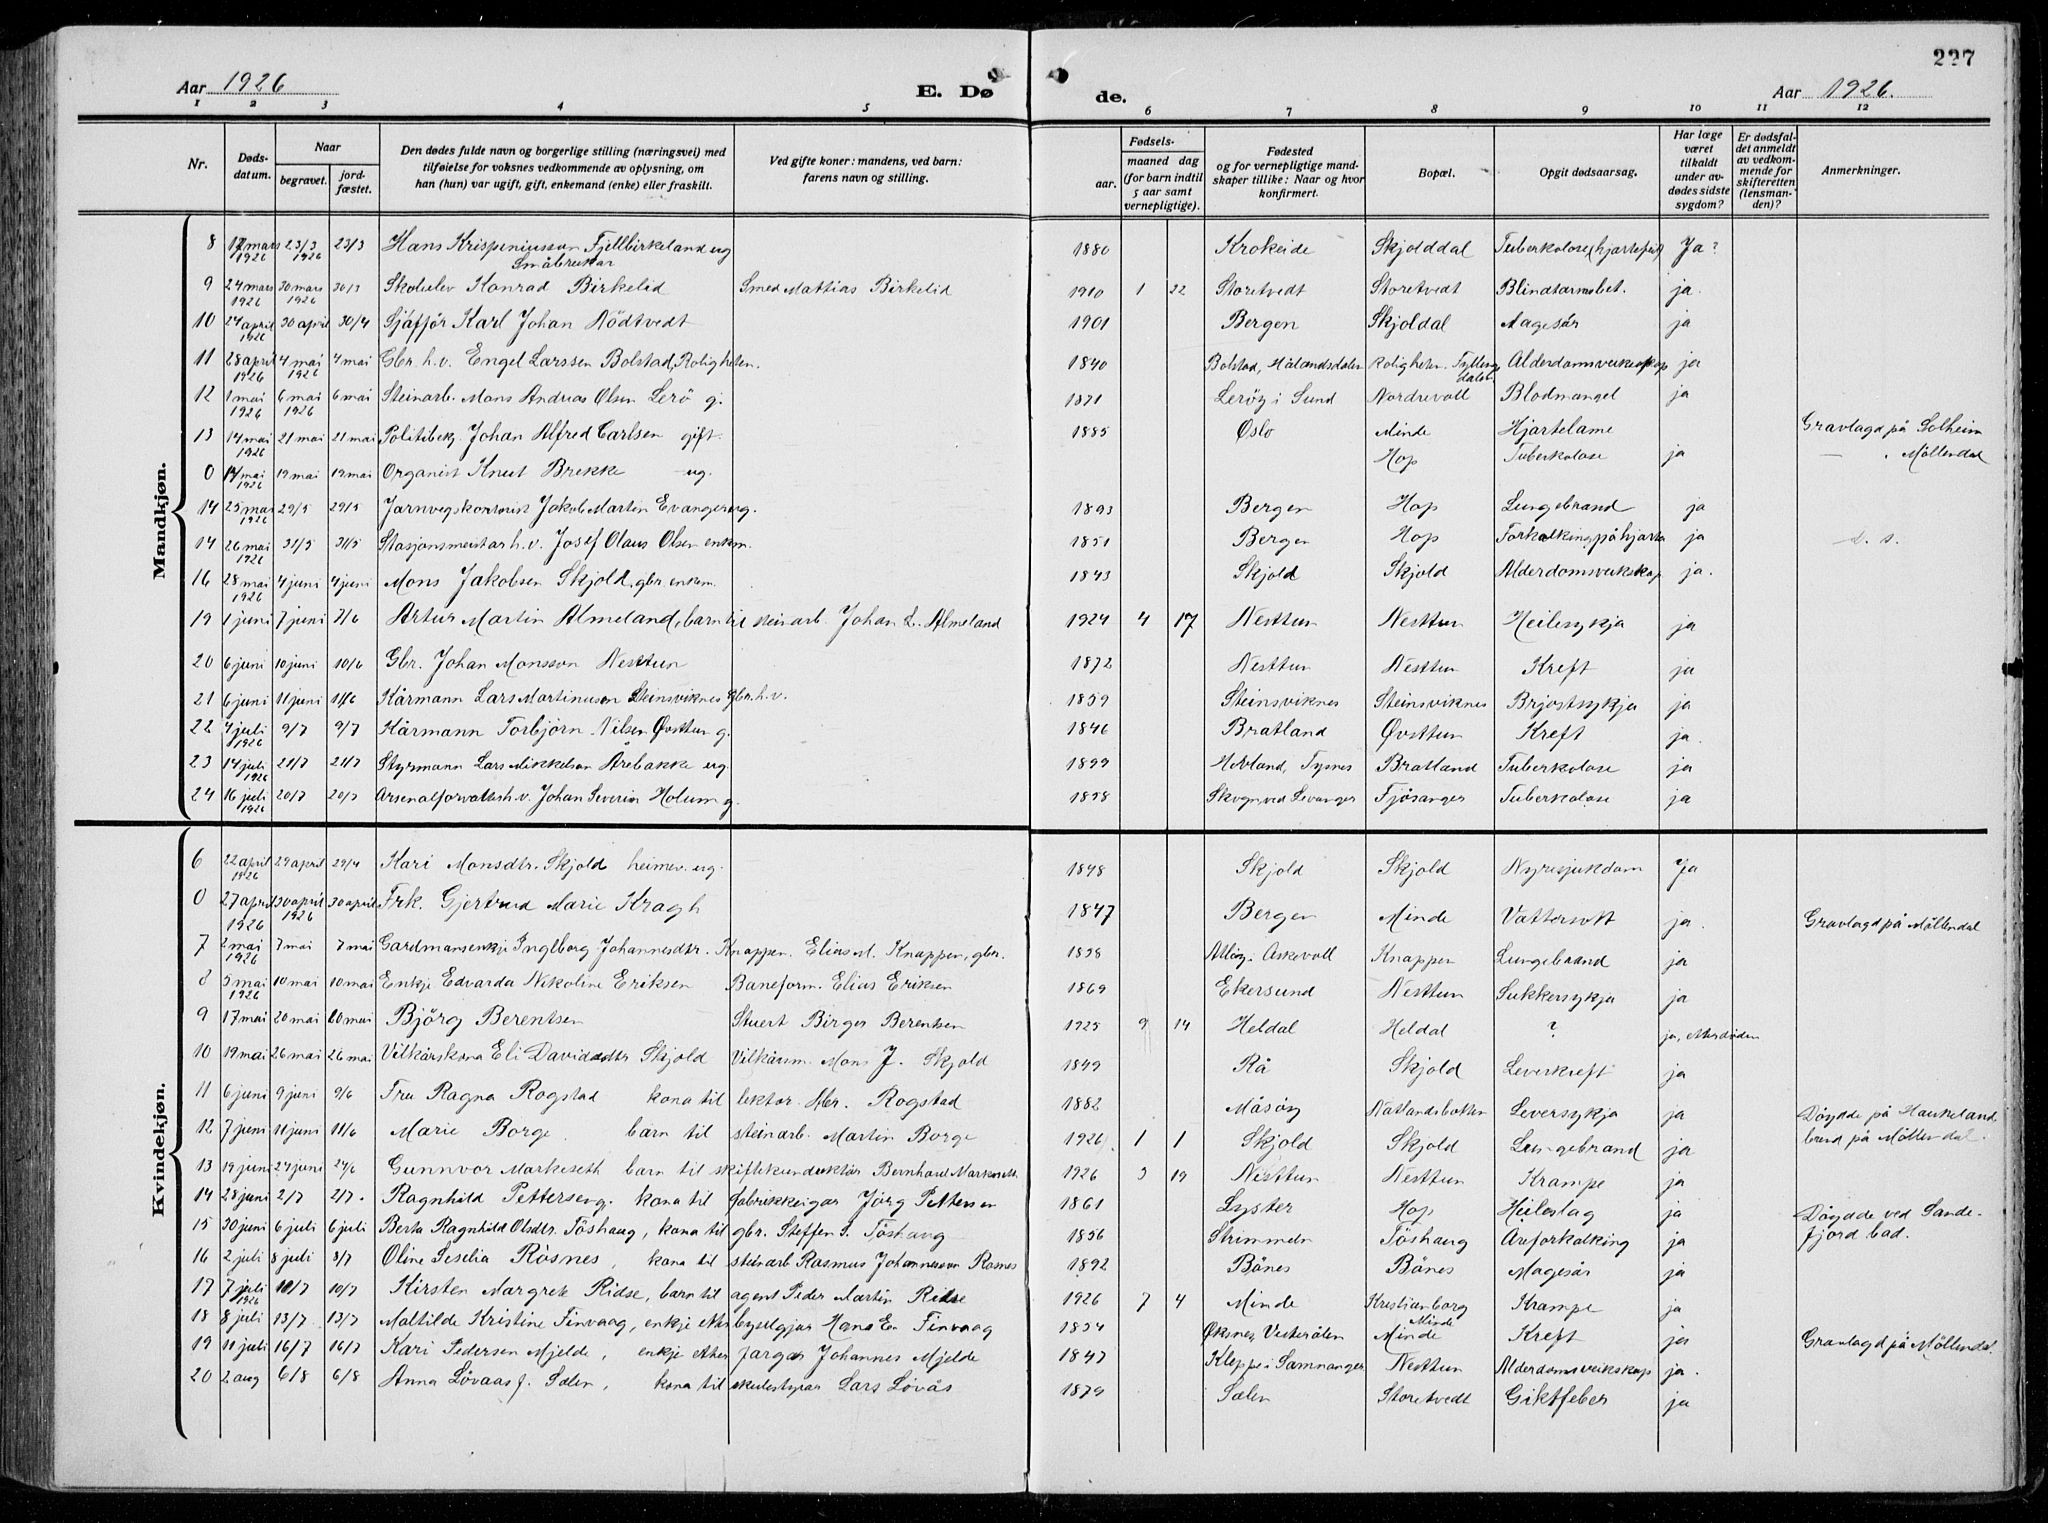 227
Aar 1926 E. Dø de. Aar 1926.
1 2 3 4 5 6 7 8 9 10 11 12
Nr. Døds-datum. Naar begravet. jord-fæstet. Den dødes fulde navn og borgerlige stilling (næringsvei) med tilføielse for voksnes vedkommende av oplysning, om han (hun) var ugift, gift, enkemand (enke) eller fraskilt. Ved gifte koner: mandens, ved barn: farens navn og stilling. Fødsels- aar. maaned dag (for barn indtil 5 aar samt vernepligtige). Fødested og for vernepligtige mandskaper tillike: Naar og hvor konfirmert. Bopæl. Opgit dødsaarsag. Har læge været tilkaldt under avdødes sidste sygdom? Er dødsfaldet anmeldt av vedkommende for skifteretten (lensmanden)? Anmerkninger.
Mandkjøn.
8 17 mars 1926 23/3 1926 23/3 Hans Krispeniussan Fjellbirkeland ug Småbrukar 1880 Krokeide Skjolddal Tuberkolose (hjartefeil) Ja?
9 24 mars 1926 30 mars 1926 30/3 Skoleelev Konrad Birkelid Smed Mattias Birkelid 1910 1 22 Storetvedt Storetvedt Blindtarmsbet. ja.
10 24 april 1926 30 april 30/4 Sjåffør Karl Johan Nödtvedt 1901 Bergen Skjoldal Magesår ja
11 28 april 1926 4 mai 1926 4 mai Gbr. h.v. Engel Larssen Bolstad, Roligheten. 1840 Bolstad, Hålandsdalen Roligheten. Fyllingsdalen Alderdomsveikskap ja
12 1 mai 1926 6 mai 1926 6 mai Steinarb. Mons Andreas Olsen Lerö g. 1871 Leröy i Sund Nordrevoll Blodmangel ja
13 14 mai 1926 21 mai 21 mai Politibetj. Johan Alfred Carlsen gift. 1885 Oslo Minde Hjartelame Gravlagd på Solheim
0 14 mai 1926 19 mai 19 mai Organist Knut Brekke ug. Hop Tuberkolose ja — " Möllendal
14 25 mai 1926 29/5 29/5 Jarnvegskontorist Jakob Martin Evanger ug. 1893 Bergen Hop Lungebrand ja
14 26 mai 1926 31/5 31/5 Stasjonsmeistar h.v. Josef Olaus Olsen enkm. 1851 Bergen Hop Forkalking på hjarta ja d. s.
16 28 mai 1926 4 juni 4 juni Mons Jakobsen Skjold, gbr. enkm. 1843 Skjold Skjold Alderdomsveikskap ja.
19 1 juni 7 juni 7/6 Artur Martin Almeland, barn til steinarb. Johan L. Almeland 1924 4 17 Nesttun Nesttun Heilesykja ja
20 6 juni 10 juni 10/6 Gbr. Johan Monsson Nesttun 1872 Nesttun Nesttun Kreft ja
21 6 juni 11 juni 11/6 Kårmann Lars Martinusen Steinsviknes gbr. h.v. 1859 Steinsviknes Steinsviknes Brjostsykja ja
22 4 juli 1926 9/7 9/7 Kårmann Torbjörn Nilsen Øvsttun g. 1846 Bratland Øvsttun Kreft ja.
23 14 juli 1926 21/7 21/7 Styrmann Lars Mikkelson Årebakke ug. 1899 Hovland, Tysnes Bratland Tuberkolose ja
24 16 juli 1926 20/7 20/7 Arsenalforvalter h.v. Johan Severin Holum g. 1858 Skogn ved Levanger Fjösanger Tuberkolose ja
Kvindekjøn.
6 22 april 1926 29 april 29/4 Kari Monsdtr. Skjold heimev. ug. 1848 Skjold Skjold Nyresjukdom Ja
0 27 april 1926 30 april 1926 30 april Frk. Gjertrud Marie Kragh 1847 Bergen Minde Vattersott ja. Gravlagd på Möllendal
7 2 mai 1926 7 mai 7 mai Gardmansenkje Ingeborg Johannesdtr. Knappen. Elias M. Knappen, gbr. 1838 Atlöy i Askevoll Knappen Lungebrand ja
8 5 mai 1926 10 mai 10 mai Enkje Edvarda Nikoline Eriksen Baneform. Elias Eriksen 1869 Ekersund Nesttun Sukkersykja ja
9 17 mai 20 mai 20 mai Björg Berentsen Stuert Birger Berentsen 1925 9 14 Heldal Heldal ? ja,
10 19 mai 26 mai 26 mai Vilkårskona Eli Davidsdtr Skjold Vilkårsm. Mons J. Skjold 1849 Rå Skjold Leverkreft ja
11 6 juni 9 juni 9/6 Fru Ragna Rogstad kona til lektor Rogstad 1882 Måsöy Natlandsbotten Leversykja ja Döydde på Haukeland
12 7 juni 11 juni 11/6 Marie Borge barn til steinarb. Martin Borge 1926 1 1 Skjold Skjold Lungebrand ja på Möllendal.
13 19 juni 24 juni 24/6 Gunnvor Markeseth barn til skiftekunduktör Bernhard Markeseth 1926 3 19 Nesttun Nesttun Krampe ja
14 28 juni 2/7 2/7. Ragnhild Pettersen g. kona til fabrikkeigar Jörg Pettersen 1861 Lyster Hop Heileslag ja Döydde ved Sande-
15 30 juni 6 juli 6 juli Berta Ragnhild Olsdtr. Töshaug, kona til gbr. Steffen S. Töshaug 1856 Strimmeln Töshaug Åreforkalking ja fjord bad.
16 2 juli 8 juli 8/7 Oline Seselia Rösnes, kona til steinarb Rasmus Johannesson Rösnes 1892 Bönes Bönes Magesår ja
17 7 juli 1926 10/7 10/7 Kirsten Margrete Ridse, barn til agent Peder Martin Ridse 1926 7 4 Minde Kristianborg Minde Krampe ja
18 8 juli 13/7 13/7 Matilde Kristine Finvaag, enkje etter byselgjar Hans E. Finvaag 1834 Øksnes, Vesterålen Minde Kreft ja Gravlagd på Möllendal.
19 11 juli 16/7 16/7 Kari Pedersen Mjelde, enkje etter fargar Johannes Mjelde 1847 Kleppe i Samnanger Nesttun Alderdomsveikskap ja.
20 2 aug 6/8 6/8 Anna Lövaas f. Sælen, kona til skulestyrar Lars Lövås 1879 Sælen Storetvedt Giktfeber ja